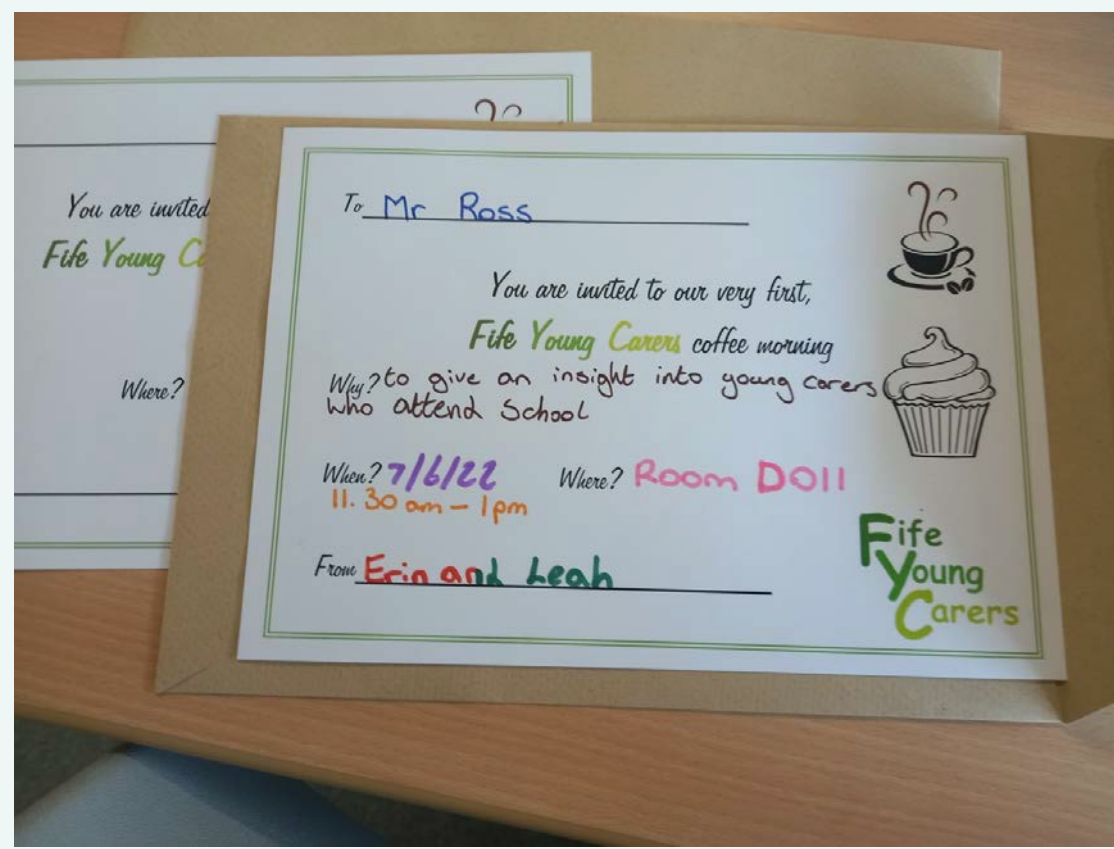 You are invited
Fife Young
Where?
To Mr Ross
You are invited to our very first,
Fife Young Carers coffee morning
Why? to give an insight into young carers
who attend School
When? 7/6/22 Where? Room D011
11.30 am – 1pm
From Erin and Leah
Fife
Young
Carers